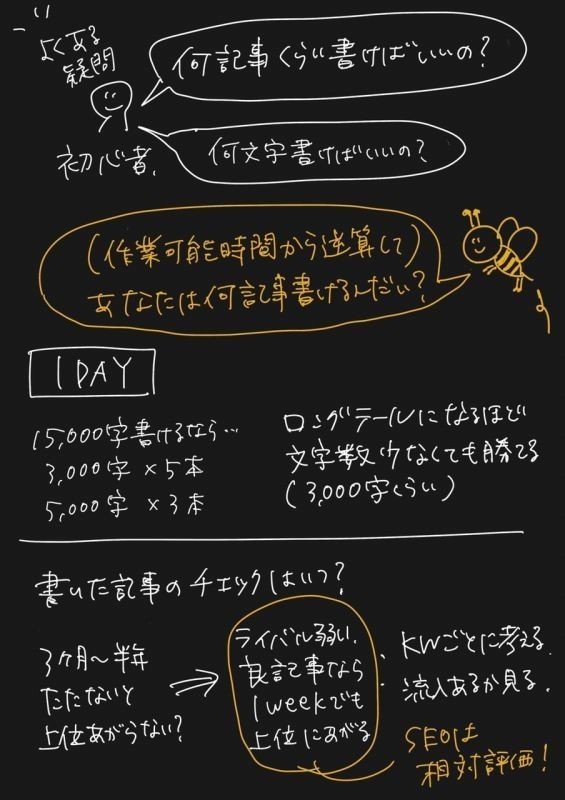 よくある
疑問
何記事くらい書けばいいの?
初心者.
何文字書けばいいの?
(作業可能時間から逆算して)
あなたは何記事書けるんだい?
1 DAY
15,000字書けるなら…
3,000字×5本
5,000字×3本
ロングテールになるほど
文字数少なくても勝てる
(3,000字くらい)
書いた記事のチェックはいつ?
3ヶ月〜半年
たたないと
上位あがらない?
⇒
ライバル弱い.
良記事なら
1weekでも
上位にあがる
・KWごとに考える.
・流入あるか見る.
SEOは
相対評価!